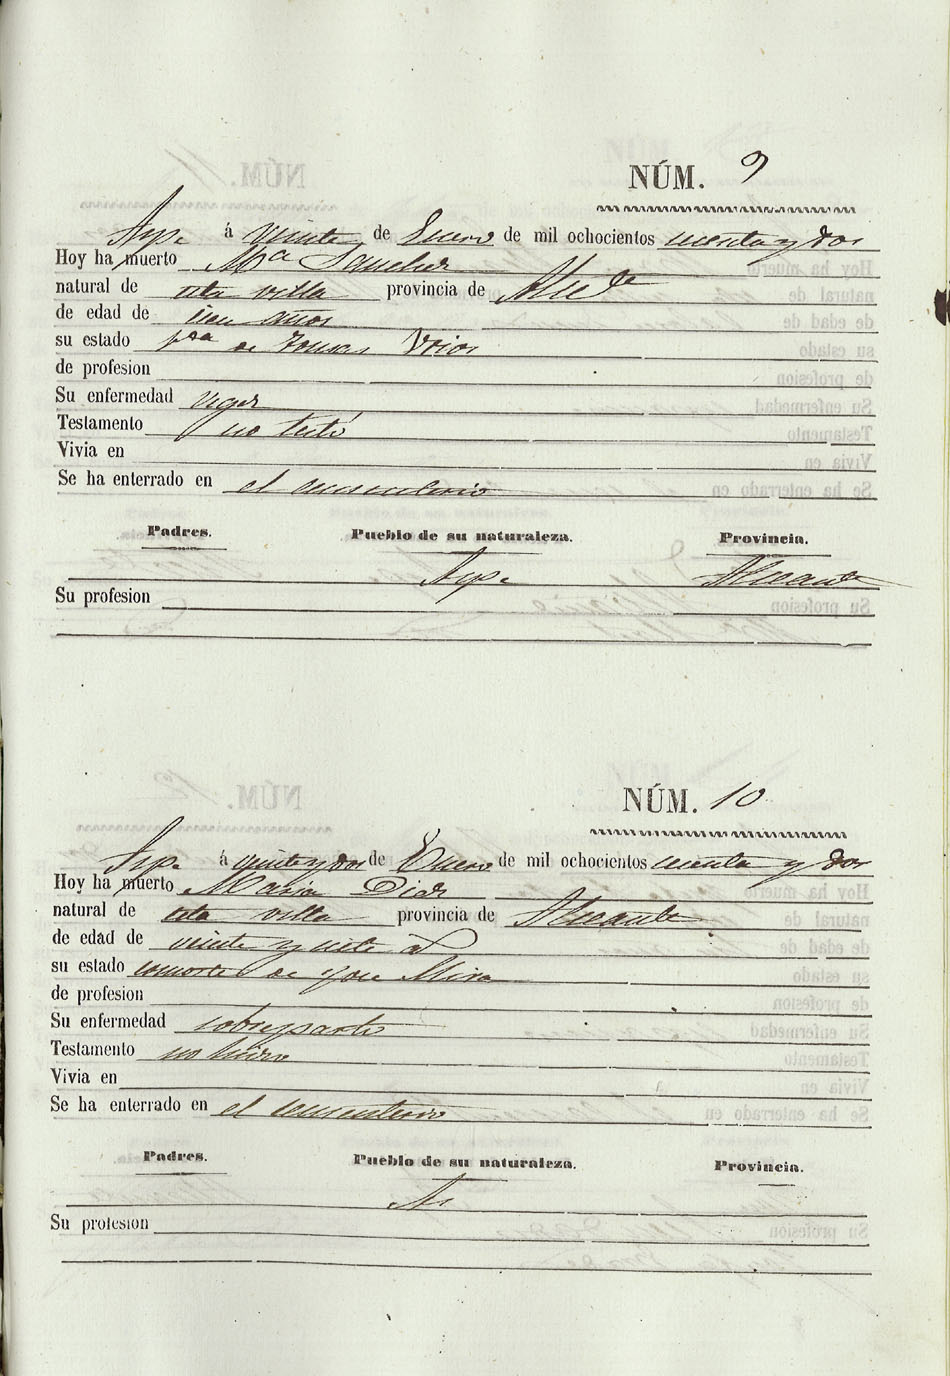 NÚM. 9
Aspe á veinte de Enero de mil ochocientos sesenta y dos
Hoy ha muerto Mª Sanchez
natural de esta villa provincia de Alicte
de edad de años
su estado de Tomas
de profesion
Su enfermedad vegez
Testamento no testó
Vivia en
Se ha enterrado en el cementerio
Padres. Pueblo de su naturaleza. Provincia.
Aspe Alicante
Su profesion
NÚM. 10
Aspe á veinte y dos de Enero de mil ochocientos sesenta y dos
Hoy ha muerto Maria Diez
natural de esta villa provincia de Alicante
de edad de veinte y siete a
su estado consorte de Jose Mira
de profesion
Su enfermedad sobreparto
Testamento no hizo
Vivia en
Se ha enterrado en el cementerio
Padres. Pueblo de su naturaleza. Provincia.
Su profesion